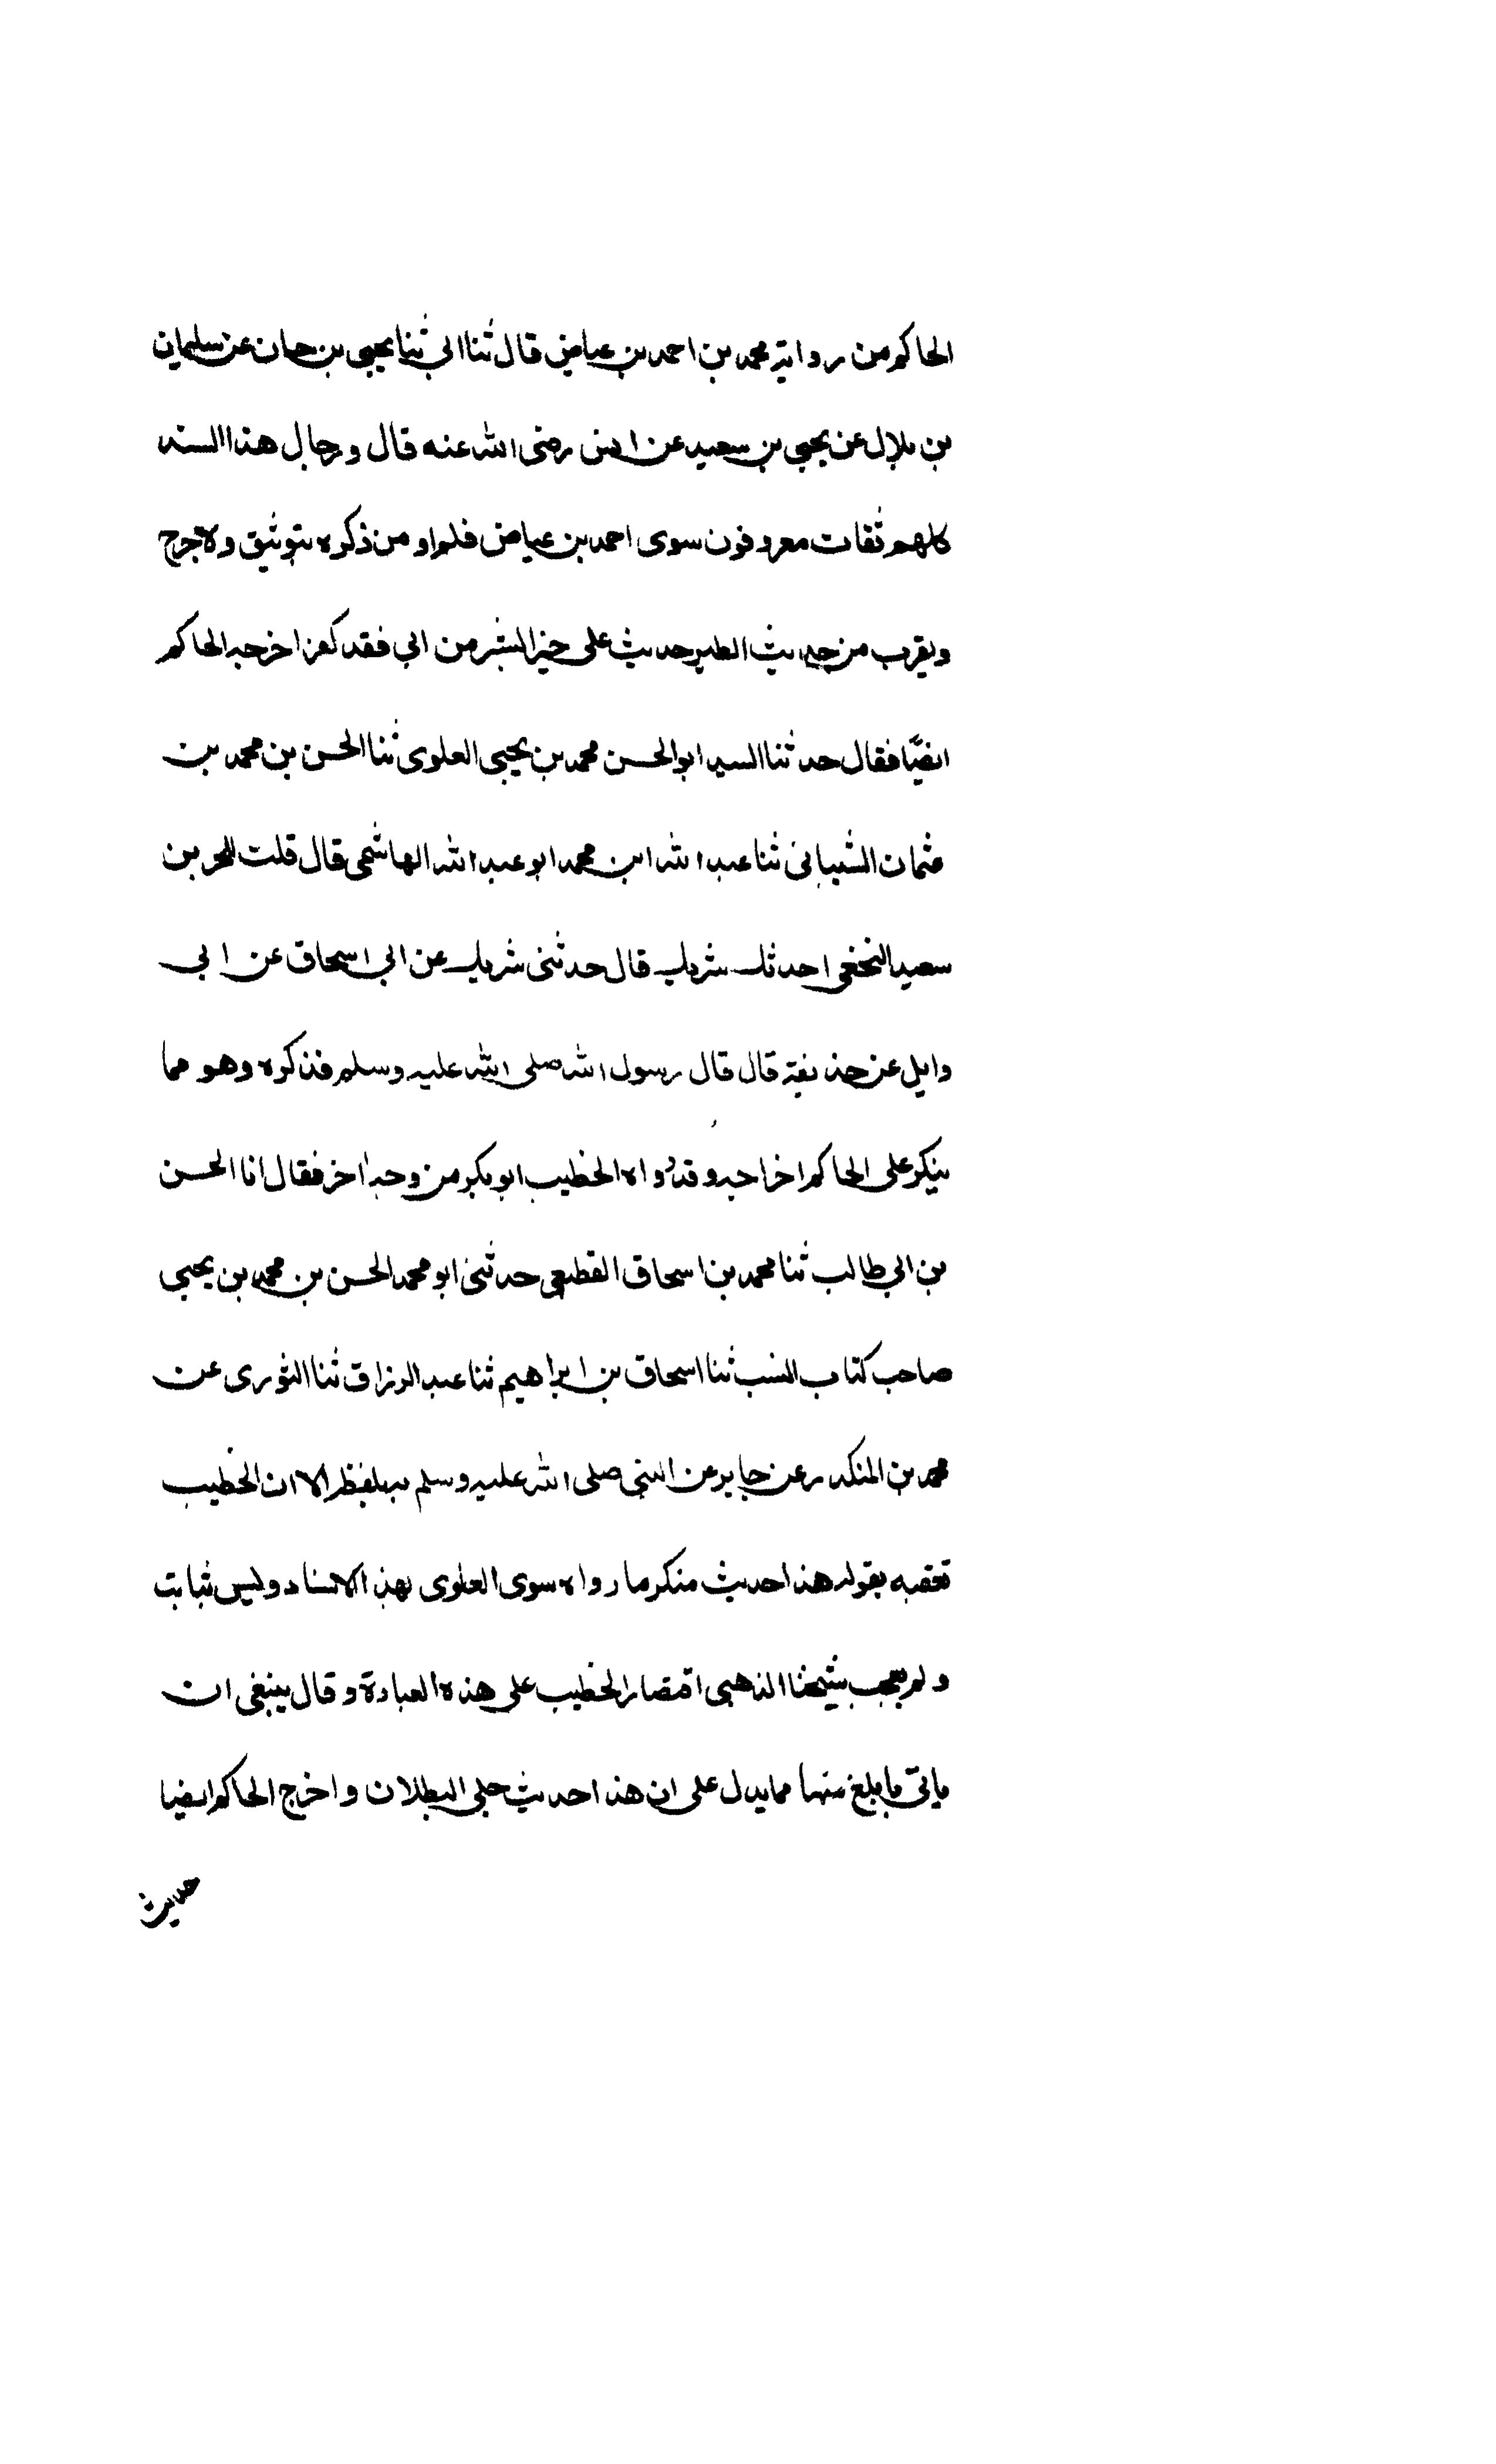 الحاكم من رواية محمد بن احمد بن عياض قال ثنا ابي ثنا يحيى بن حسان عن سليمان
بن بلال عن يحيى بن سعيد عن انس رضى الله عنه قال ورجال هذا السند
كلهم ثقات معروفون سوى احمد بن عياض فلم او من ذكره بتوثيق ولا جرح
ويقرب من حديث الطير حديث على خير البشر من ابي فقد كفر اخرجه الحاكم
ايضًا فقال حدثنا السيد ابو الحسن محمد بن يحيى العلوى ثنا الحسن بن محمد بن
عثمان الشيبانى ثنا عبد الله ابن محمد ابو عبد الله الهاشمى قال قلت للحر بن
سعيد النخعى احدثك شريك قال حدثنى شريك عن ابى اسحاق عن ابى
وايل عن حذيفة قال قال رسول الله صلى الله عليه وسلم فذكره وهو مما
ينكر على الحاكم اخراجه وقد رواه الخطيب ابو بكر من وجه اخر فقال انا الحسن
بن ابى طالب ثنا محمد بن اسحاق القطيعى حدثنى ابو محمد الحسن بن محمد بن يحيى
صاحب كتاب النسب ثنا اسحاق بن ابراهيم ثنا عبد الرزاق ثنا الثورى عن
محمد بن المنكدر عن جابر عن النبى صلى الله عليه وسلم بلفظ الا ان الخطيب
تعقبه بقوله هذا حديث منكر ما رواه سوى العلوى بهذا الاسناد وليس بثابت
ولم يعجب شيخنا الذهبى اقتصار الخطيب على هذه العبادة وقال ينبغى ان
ياتى بابلغ منها مما يدل على ان هذا حديث جلى البطلان واخرج الحاكم ايضا
حديث